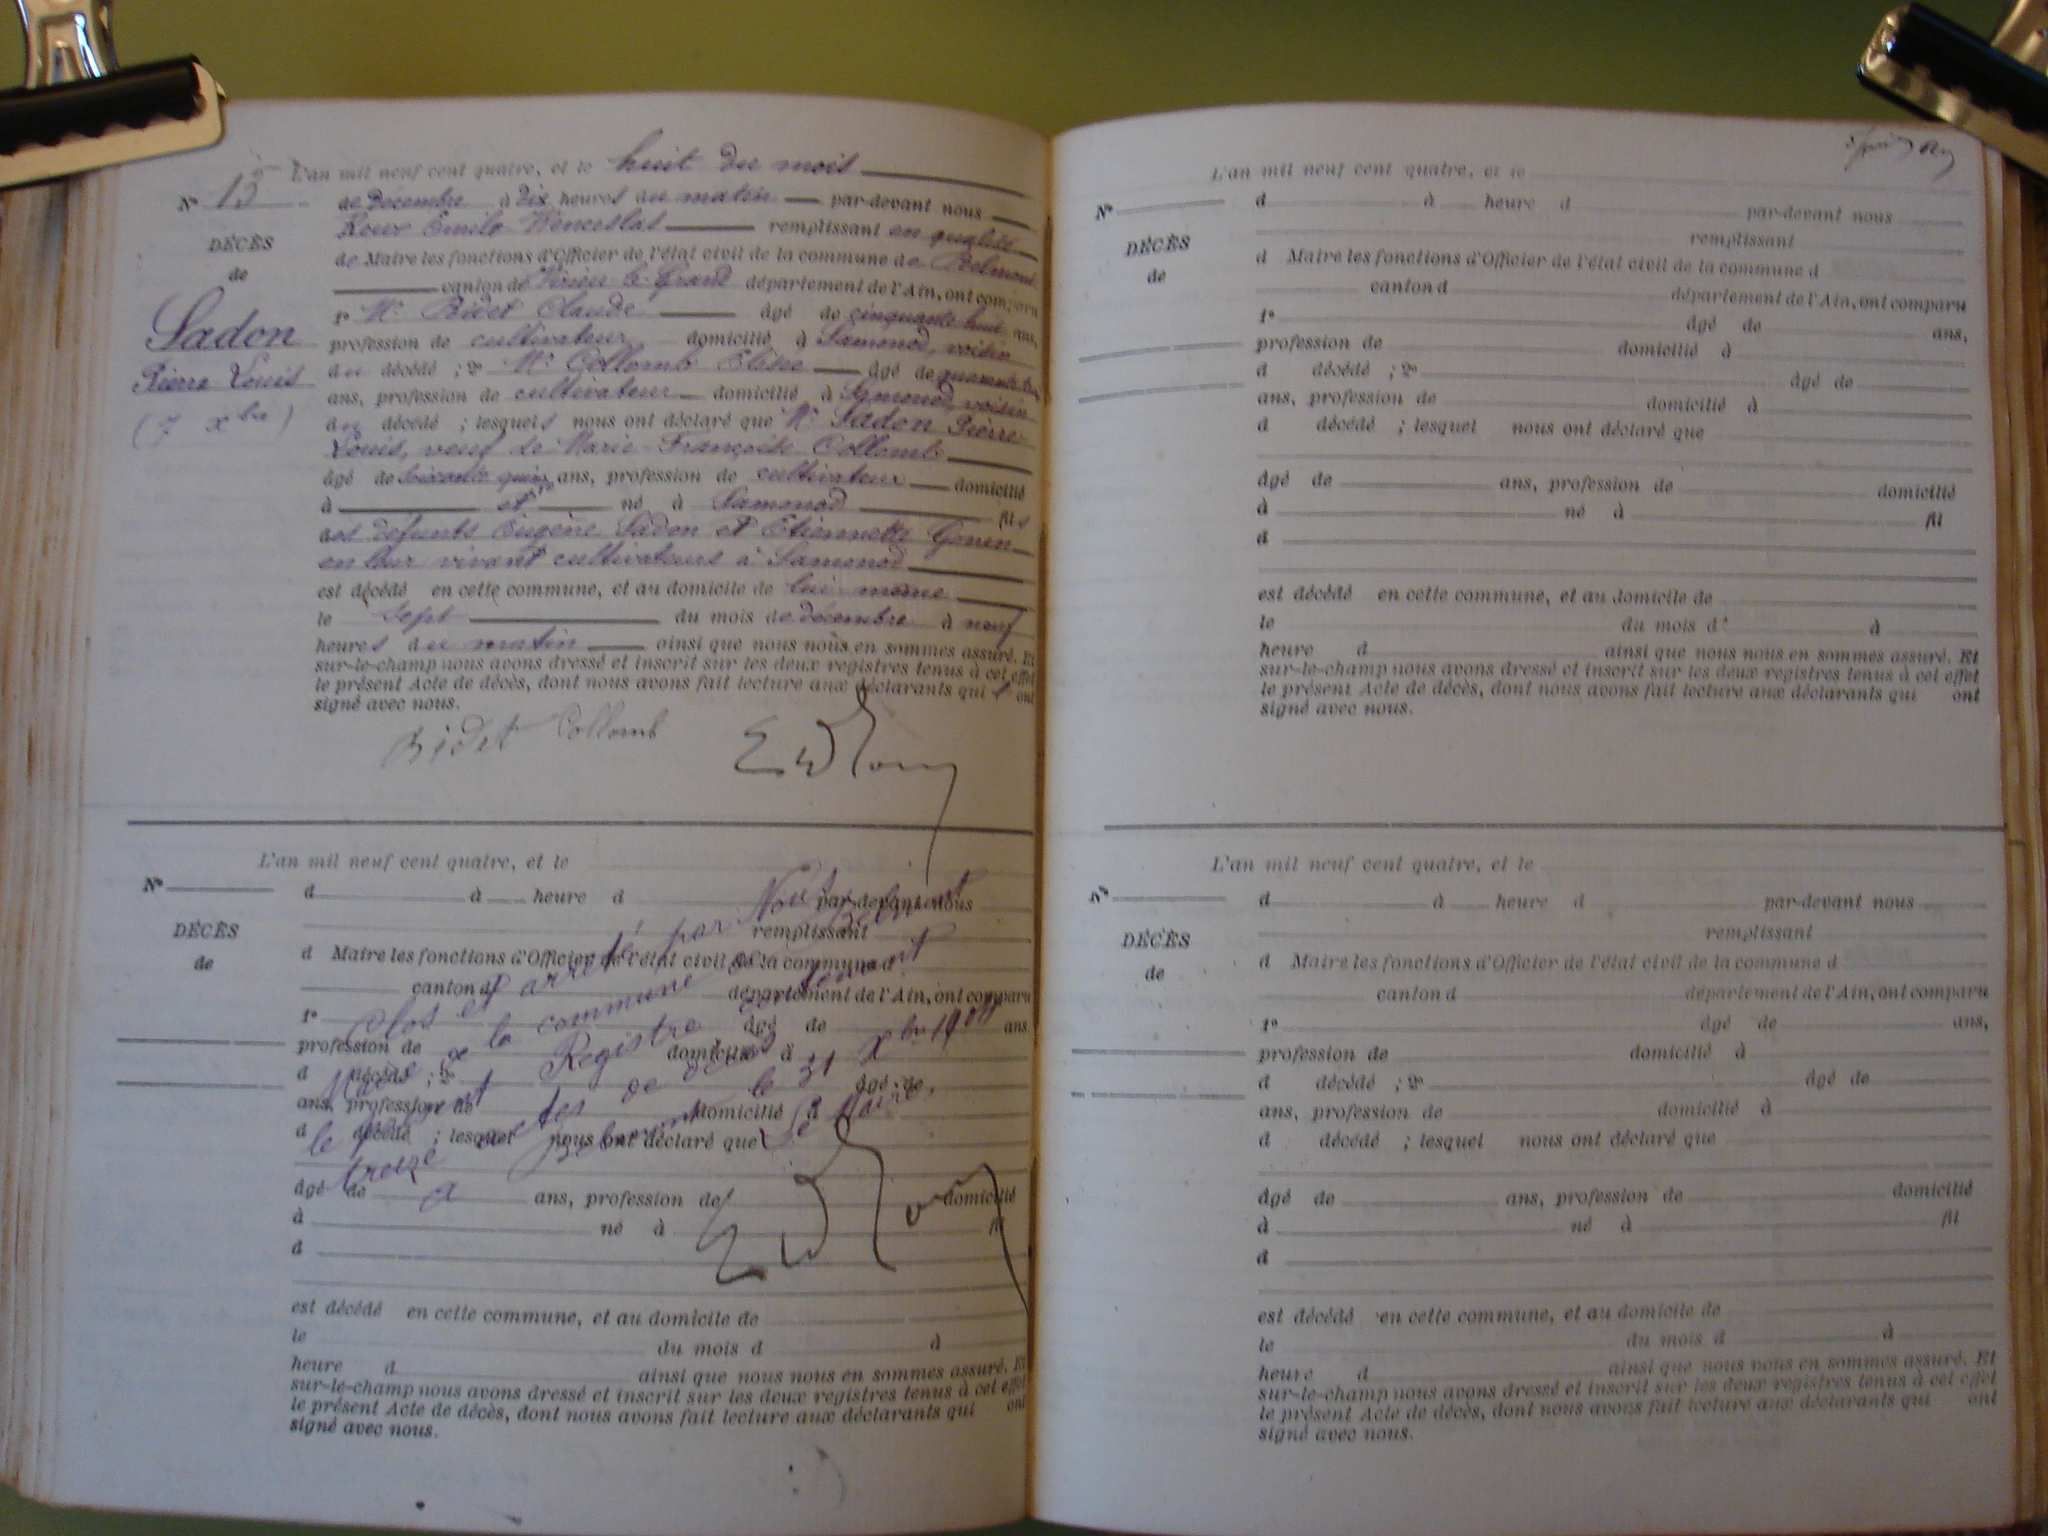 L'an mil neuf cent quatre, et le huit du mois
N° 13
de Décembre à dix heures du matin par-devant nous
Roux Emile Wenceslas remplissant en qualité
DÉCÈS
de
de Maire les fonctions d'Officier de l'état civil de la commune de Belmont
canton de Virieu le Grand département de l'Ain, ont comparu
Ladon
Pierre Louis
(7 xbre)
1° Mr Bidet Claude âgé de cinquante huit ans,
profession de cultivateur domicilié à Samonod, voisin
du décédé ; 2° Mr Collomb Elisée âgé de quarante
ans, profession de cultivateur domicilié à Samonod, voisin
du décédé ; lesquels nous ont déclaré que Mr Ladon Pierre
Louis, veuf de Marie Françoise Collomb
âgé de soixante quinze ans, profession de cultivateur domicilié
à et né à Samonod fils
des défunts Eugène Ladon et Etiennette Gonin
en leur vivant cultivateurs à Samonod
est décédé en cette commune, et au domicile de lui même
le sept du mois de décembre à neuf
heures du matin ainsi que nous nous en sommes assuré. Et
sur-le-champ nous avons dressé et inscrit sur les deux registres tenus à cet effet
le présent Acte de décès, dont nous avons fait lecture aux déclarants qui ont
signé avec nous.
Bidet Collomb E W Roux
L'an mil neuf cent quatre, et le
N°
d à heure d par-devant nous
remplissant
DÉCÈS
de
d Maire les fonctions d'Officier de l'état civil de la commune d
canton d département de l'Ain, ont comparu
1° âgé de ans,
profession de domicilié à
d décédé ; 2° âgé de
ans, profession de domicilié à
d décédé ; lesquel nous ont déclaré que
âgé de ans, profession de domicilié
à né à fil
d
est décédé en cette commune, et au domicile de
le du mois d à
heure d ainsi que nous nous en sommes assuré. Et
sur-le-champ nous avons dressé et inscrit sur les deux registres tenus à cet effet
le présent Acte de décès, dont nous avons fait lecture aux déclarants qui ont
signé avec nous.
Clos et arrêté par Nous
Maire de la commune de Belmont
le présent Registre contenant
treize actes de décès
à Belmont le 31 Xbre 1904
Le Maire,
E W Roux
L'an mil neuf cent quatre, et le
N°
d à heure d par-devant nous
remplissant
DÉCÈS
de
d Maire les fonctions d'Officier de l'état civil de la commune d
canton d département de l'Ain, ont comparu
1° âgé de ans,
profession de domicilié à
d décédé ; 2° âgé de
ans, profession de domicilié à
d décédé ; lesquel nous ont déclaré que
âgé de ans, profession de domicilié
à né à fil
d
est décédé en cette commune, et au domicile de
le du mois d à
heure d ainsi que nous nous en sommes assuré. Et
sur-le-champ nous avons dressé et inscrit sur les deux registres tenus à cet effet
le présent Acte de décès, dont nous avons fait lecture aux déclarants qui ont
signé avec nous.
L'an mil neuf cent quatre, et le
N°
d à heure d par-devant nous
remplissant
DÉCÈS
de
d Maire les fonctions d'Officier de l'état civil de la commune d
canton d département de l'Ain, ont comparu
1° âgé de ans,
profession de domicilié à
d décédé ; 2° âgé de
ans, profession de domicilié à
d décédé ; lesquel nous ont déclaré que
âgé de ans, profession de domicilié
à né à fil
d
est décédé en cette commune, et au domicile de
le du mois d à
heure d ainsi que nous nous en sommes assuré. Et
sur-le-champ nous avons dressé et inscrit sur les deux registres tenus à cet effet
le présent Acte de décès, dont nous avons fait lecture aux déclarants qui ont
signé avec nous.